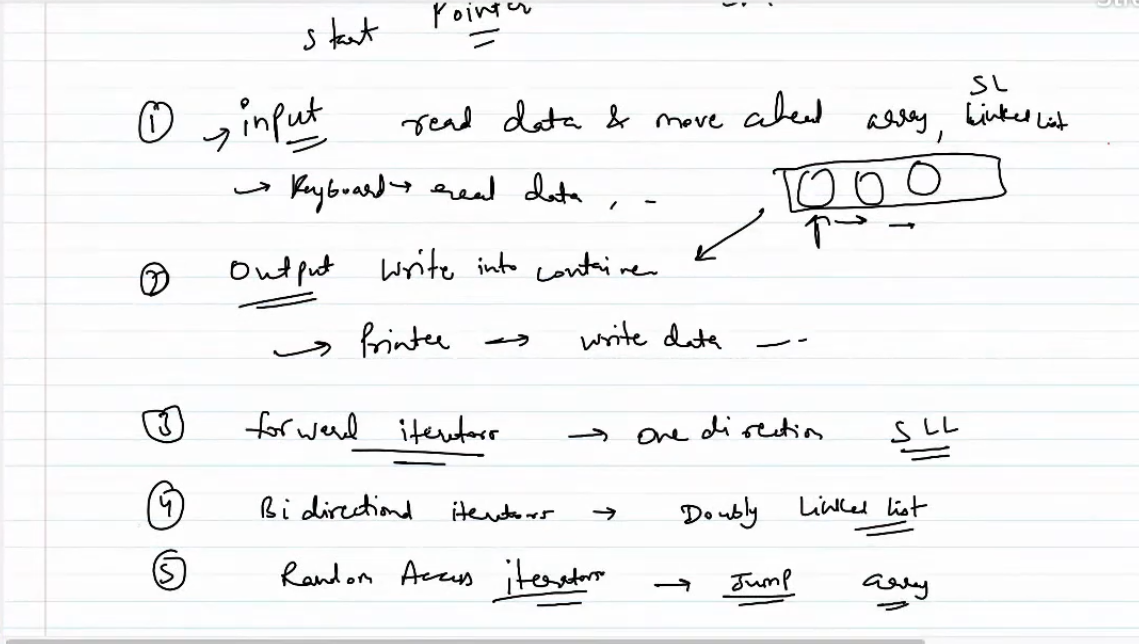 Pointer
start
① → input read data & move ahead array, SL Linked List
→ Keyboard → read data , -
② Output Write into container
→ Printer → write data --
③ forward iterators → one direction SLL
④ Bidirectional iterators → Doubly Linked list
⑤ Random Access iterators → Jump array